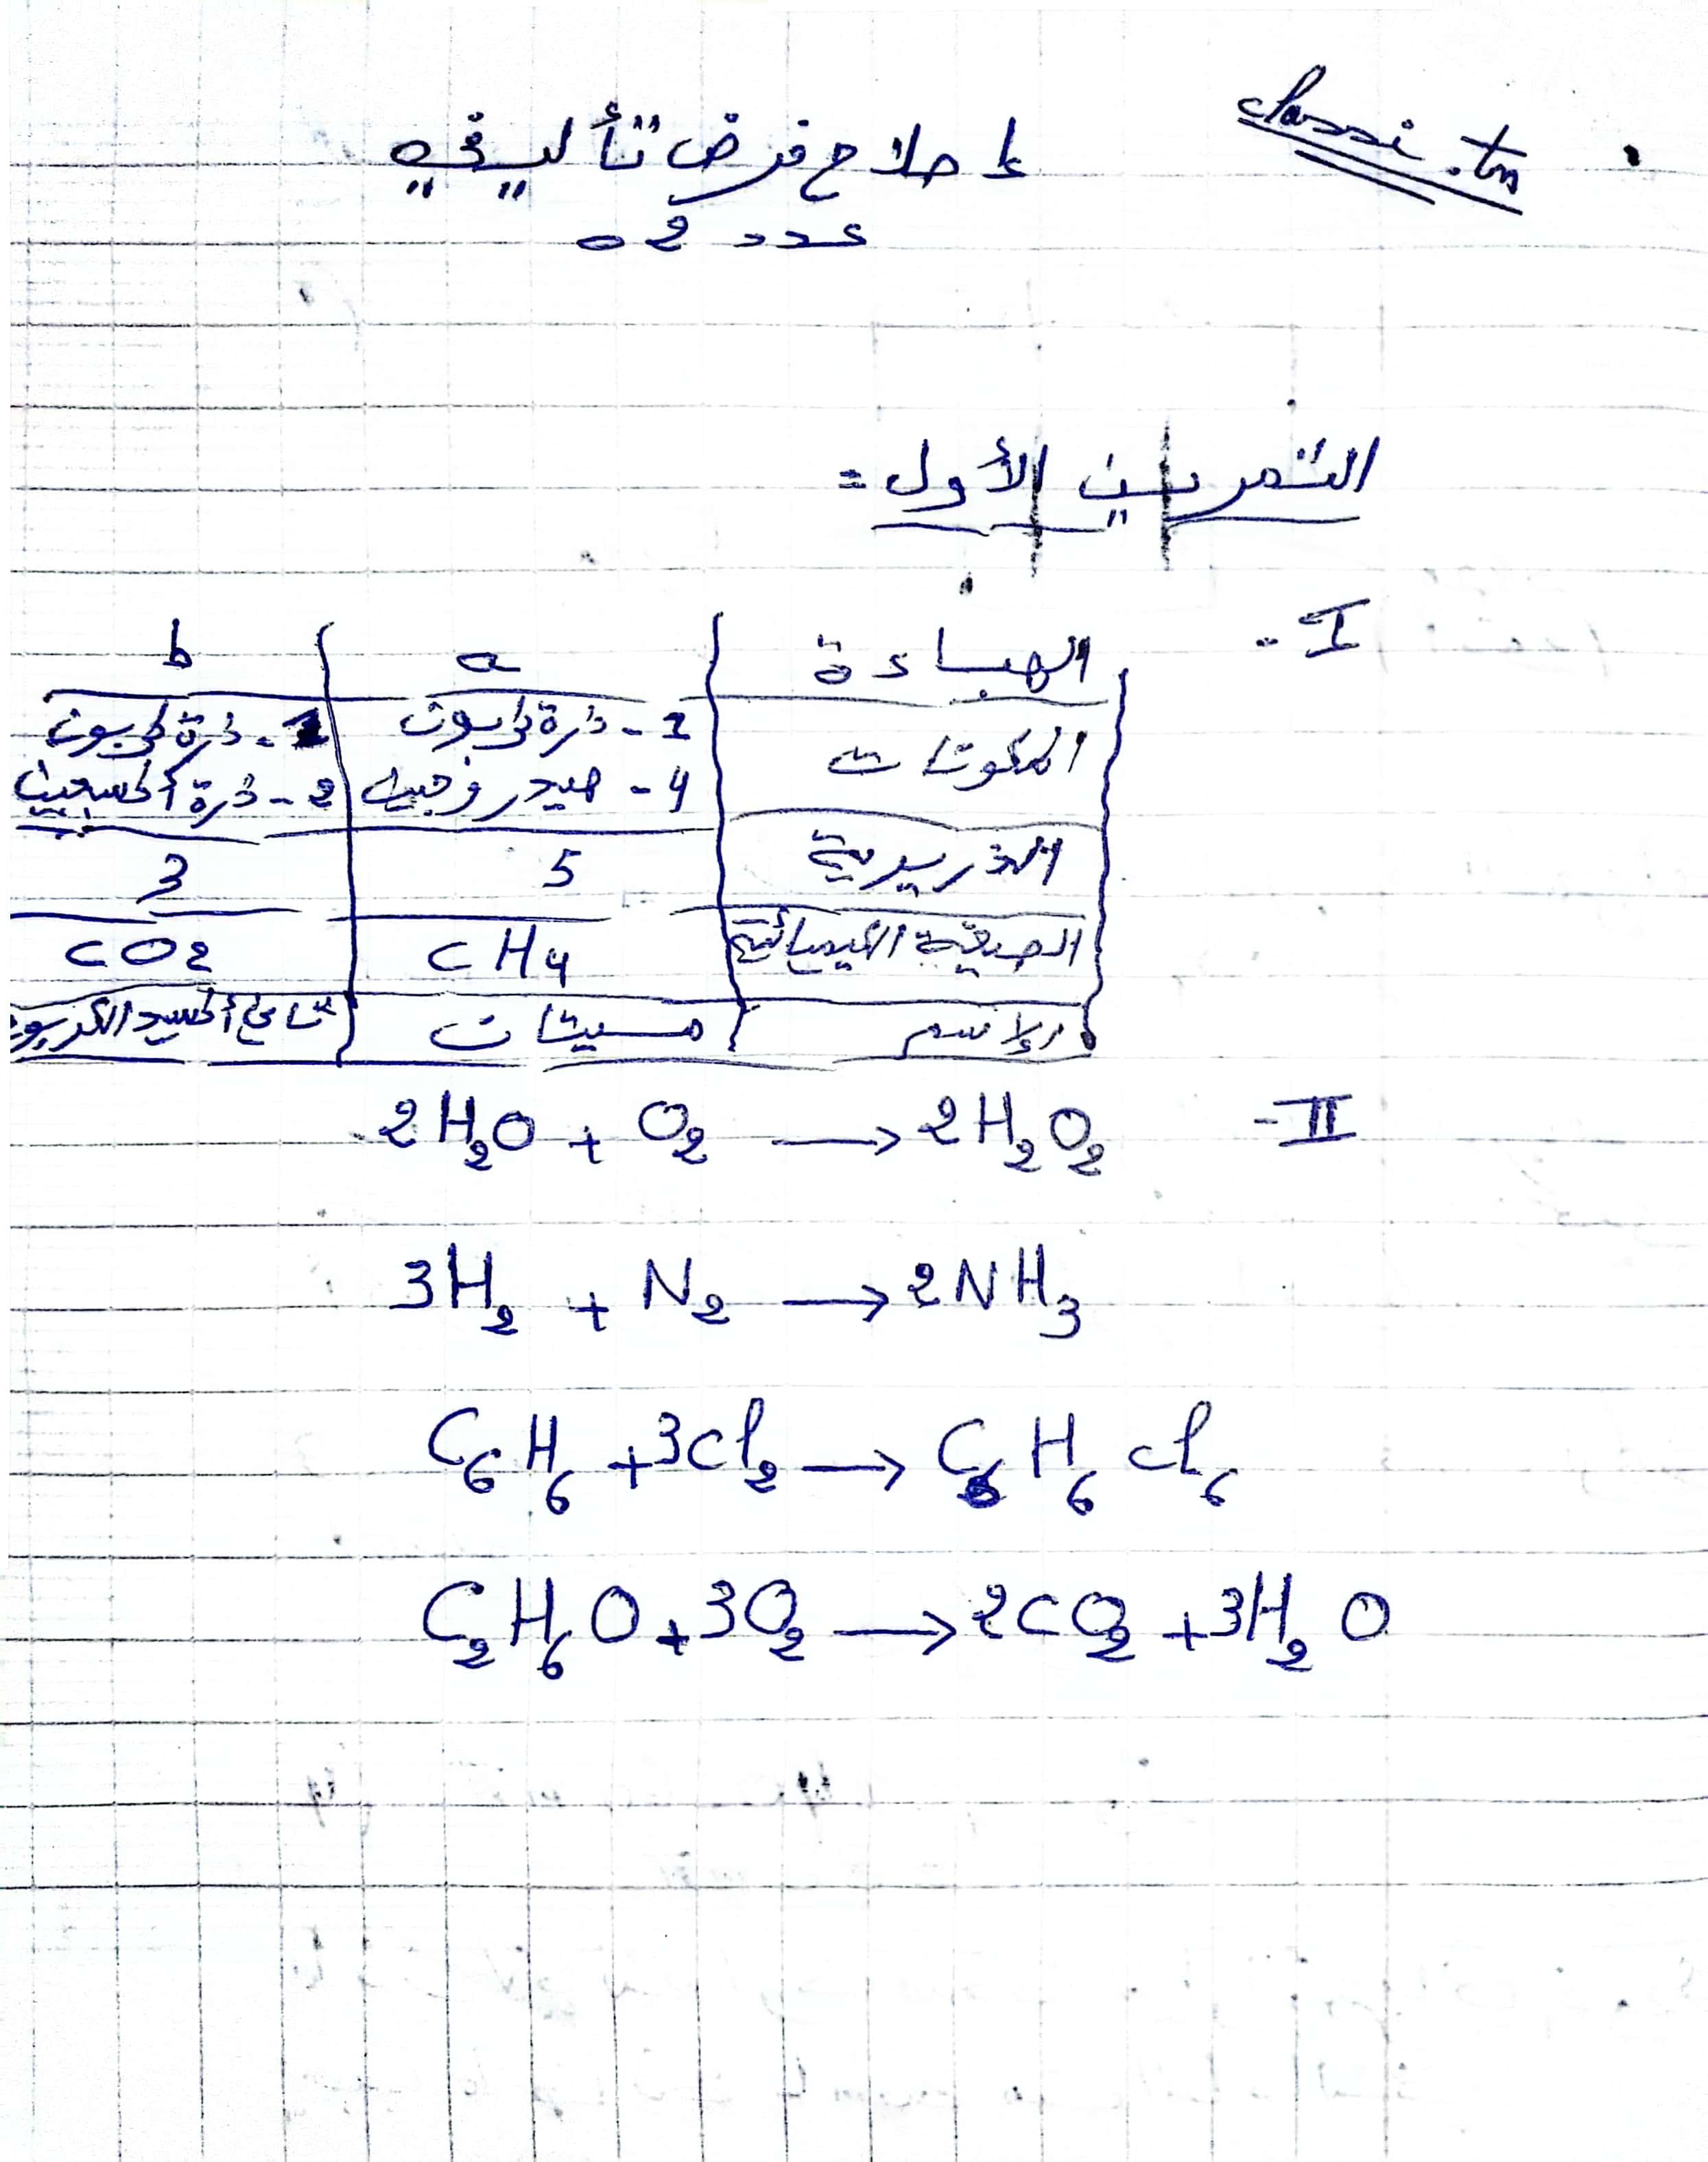 classi.tn
إصلاح فرض تأليفي
عدد 02
التمرين الأول:
I-
الهباءة a b
المكونات 1- ذرة كربون 1- ذرة كربون
4- هيدروجين 2- ذرة أكسجين
الذريرية 5 3
الصيغة الكيميائية CH4 CO2
الإسم ميثان ثاني أكسيد الكربون
II- 2H₂O + O₂ → 2H₂O₂
3H₂ + N₂ → 2NH₃
C₆H₆ + 3Cl₂ → C₆H₆Cl₆
C₂H₆O + 3O₂ → 2CO₂ + 3H₂O